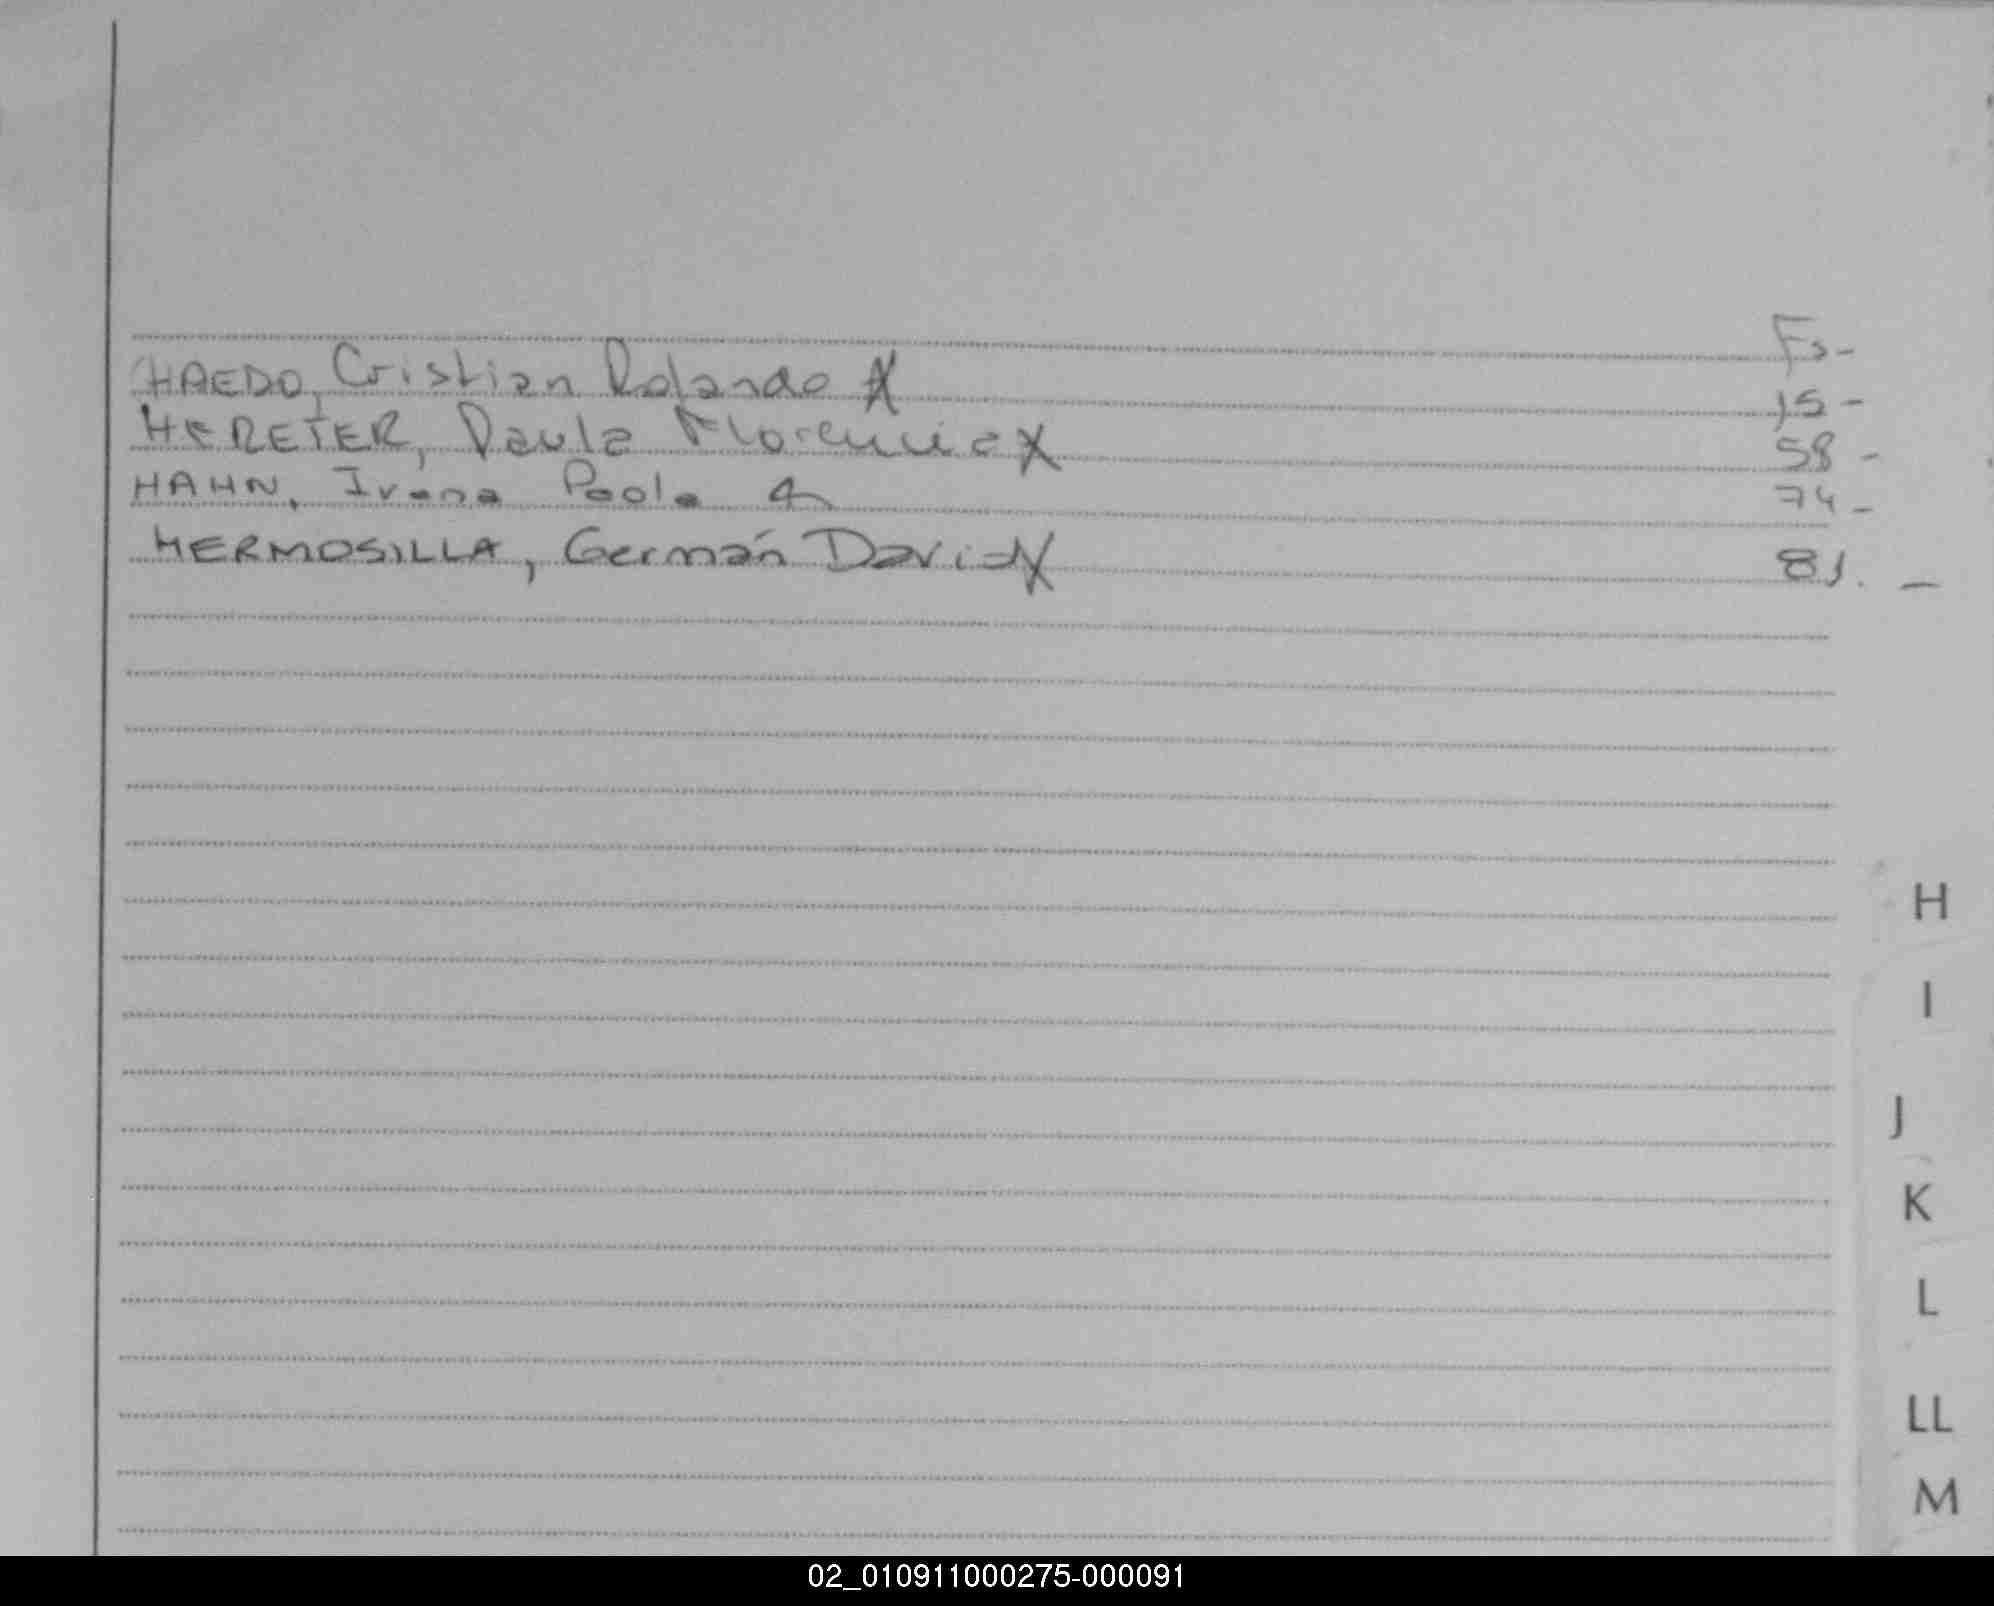 Fs-
HAEDO, Cristian Rolando X 15 -
HERETER, Paula Florencia X 58 -
HAHN, Ivana Paola 74 -
HERMOSILLA, Germán David X 81. -
H
I
J
K
L
LL
M
02_010911000275-000091